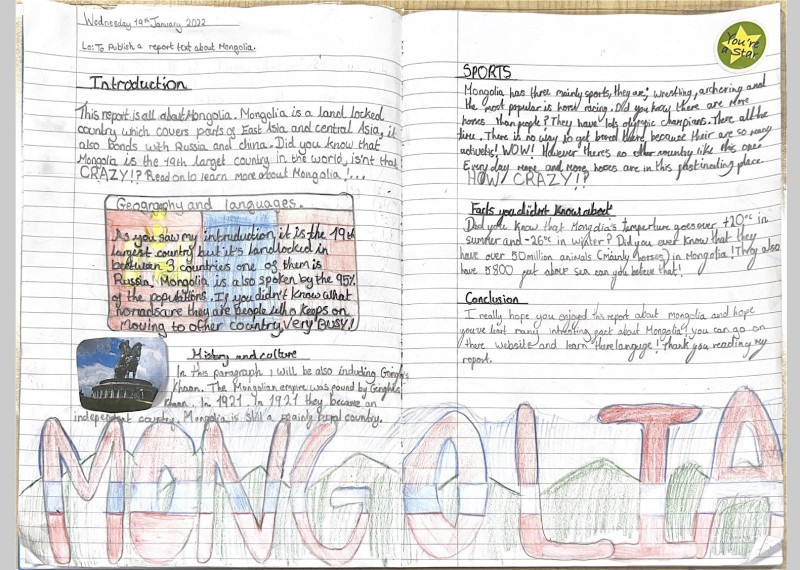 Wednesday 19th January 2022
Lo: To Publish a report text about Mongolia.
Introduction
This report is all about Mongolia. Mongolia is a land locked
country which covers parts of East Asia and central Asia, it
also bonds with Russia and china. Did you know that
Mongolia is the 19th largest country in the world, isn't that
CRAZY!? Read on to learn more about Mongolia!...
Geography and languages.
As you saw my intruduction, it is the 19th
largest country but it's landlocked in
between 3 countries one of them is
Russia! Mongolia is also spoken by the 95%
of the populations. If you didn't know what
normads are they are people who keeps on
moving to other country, Very BUSY!
History and culture
In this paragraph I will be also including Genghis
Khaan. The Mongolian empire was found by Genghis
Khaan. In 1921. In 1921 they became an
independent country. Mongolia is still a mainly rural country.
You're a Star
SPORTS
Mongolia has three mainly sports, they are; wrestling, archering and
the most popular is horse racing. Did you know there are more
horses than people? They have lots olympic champions. There all the
time. There is no way to get bored there because their are so many
activitys! WOW! However there's no other country like this one!
Every day more and more horses are in this place.
HOW CRAZY!?
Facts you didn't know about
Did you know that Mongolia's temperture goes over +10°C in
summer and -26°C in winter? Did you ever know that they
have over 50 million animals (mainly horses) in Mongolia! They also
have 5800 above sea can you believe that!
Conclusion
I really hope you enjoyed this report about mongolia and hope
you've many about Mongolia! you can go on
there website and learn there languge! Thank you reading my
report.
MONGOLIA